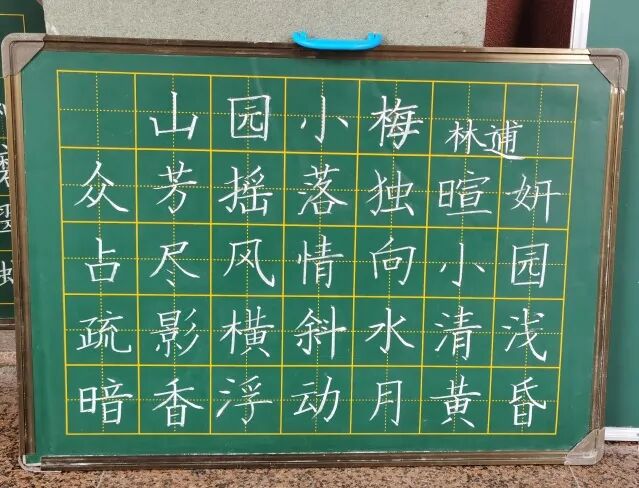 山园小梅 林逋
众芳摇落独暄妍
占尽风情向小园
疏影横斜水清浅
暗香浮动月黄昏